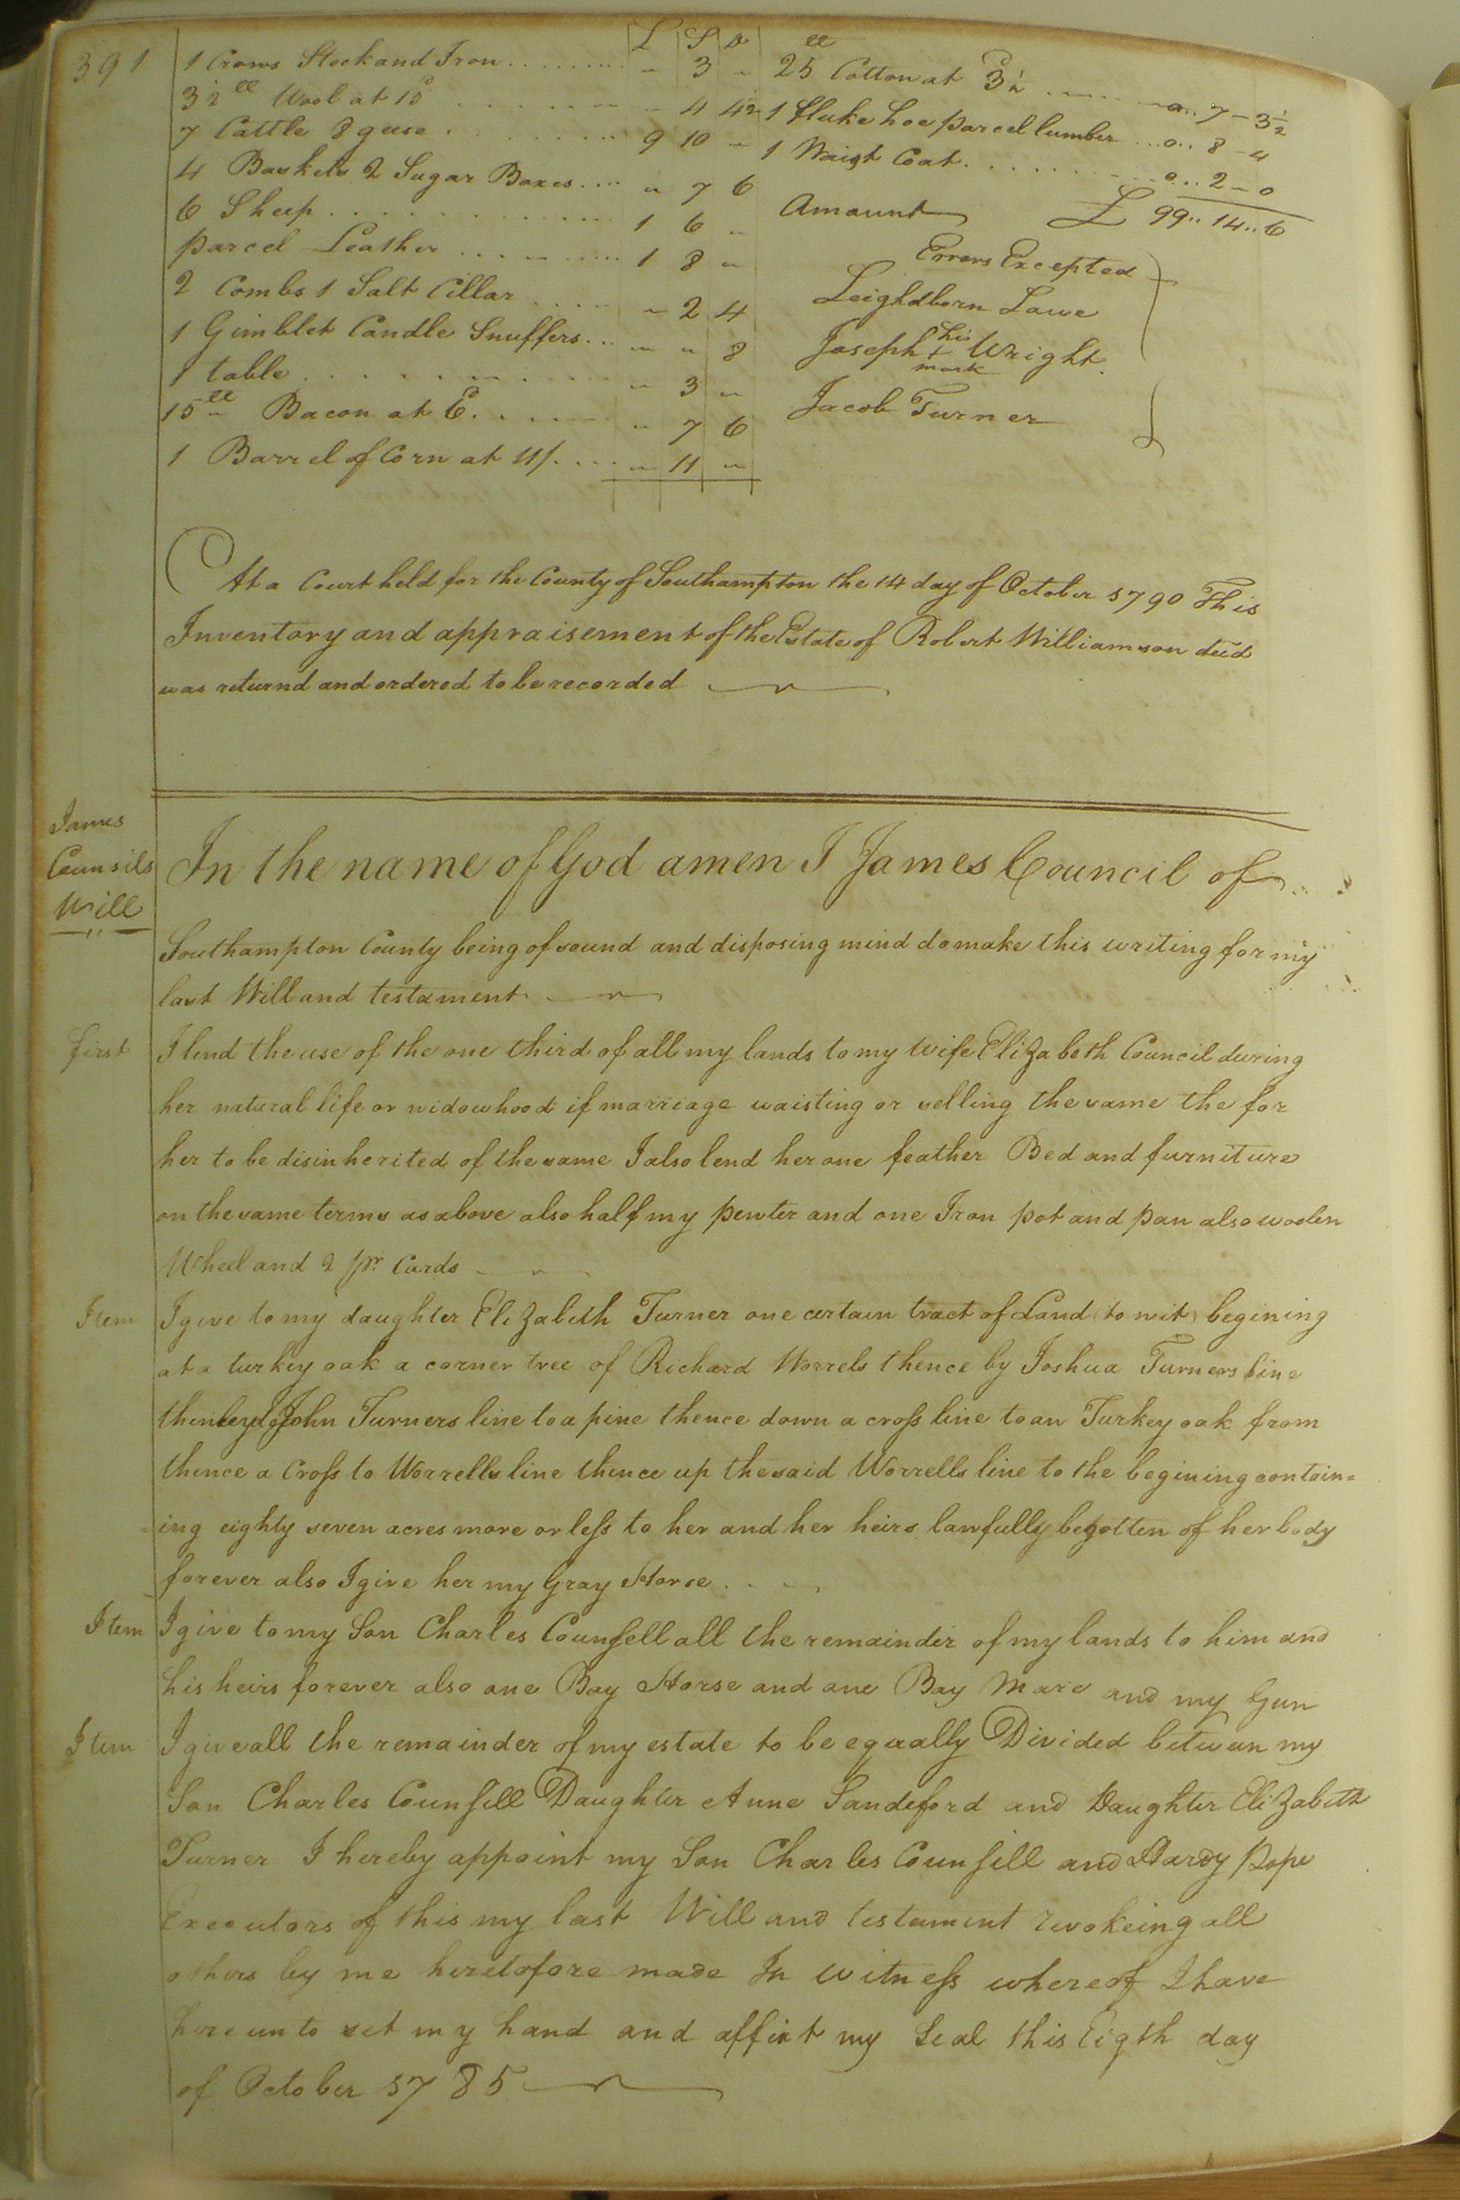 391
L S D
1 Crows Stock and Iron ........ " 3 "
3½ ll Wool at 15d ........ " 4 4½
7 Cattle 8 geese ........ 9 10 "
4 Baskets 2 Sugar Boxes .... " 7 6
6 Sheep ........ 1 6 "
parcel Leather ........ 1 8 "
2 Combs 1 Salt Cillar ..... " 2 4
1 Gimblet Candle Snuffers ... " " 8
1 table ........ " 3 "
15 ll Bacon at 6 ...... " 7 6
1 Barrel of Corn at 11/. .... " 11 "
25 ll Cotton at 3½d ...... 0.. 7 - 3½
1 fluke hoe parcel lumber ... 0.. 8 - 4
1 Waist Coat ........ 0.. 2 - 0
Amount £ 99.. 14.. 6
Errors Excepted
Leighdborn Lawe
Joseph his + mark Wright
Jacob Turner
At a Court held for the County of Southampton the 14 day of October 1790 This
Inventory and appraisement of the Estate of Robert Williamson decd
was returnd and ordered to be recorded
James
Counsils
Will
In the name of God amen I James Council of
Southampton County being of sound and disposing mind do make this writing for my
last Will and testament
first I lend the use of the one third of all my lands to my wife Elizabeth Council during
her natural life or widowhood if marriage waisting or selling the same the for
her to be disinherited of the same I also lend her one feather Bed and furniture
on the same terms as above also half my pewter and one Iron pot and pan also woolen
Wheel and 2 pr. Cards
Item I give to my daughter Elizabeth Turner one certain tract of Land (to wit) begining
at a turkey oak a corner tree of Richard Worrels thence by Joshua Turners line
John Turners line to a pine thence down a cross line to an Turkey oak from
thence a Cross to Worrells line thence up the said Worrells line to the begining contain=
=ing eighty seven acres more or less to her and her heirs lawfully begotten of her body
forever also I give her my Gray Horse
Item I give to my Son Charles Counsell all the remainder of my lands to him and
his heirs forever also one Bay Horse and one Bay Mare and my Gun
Item I give all the remainder of my estate to be equally Divided between my
Son Charles Counsill Daughter Anne Sandeford and Daughter Elizabeth
Turner I hereby appoint my Son Charles Counsill and Hardy Pope
Executors of this my last Will and testament revokeing all
others by me heretofore made In witness whereof I have
hereunto set my hand and affixt my Seal this Eigth day
of October 1785